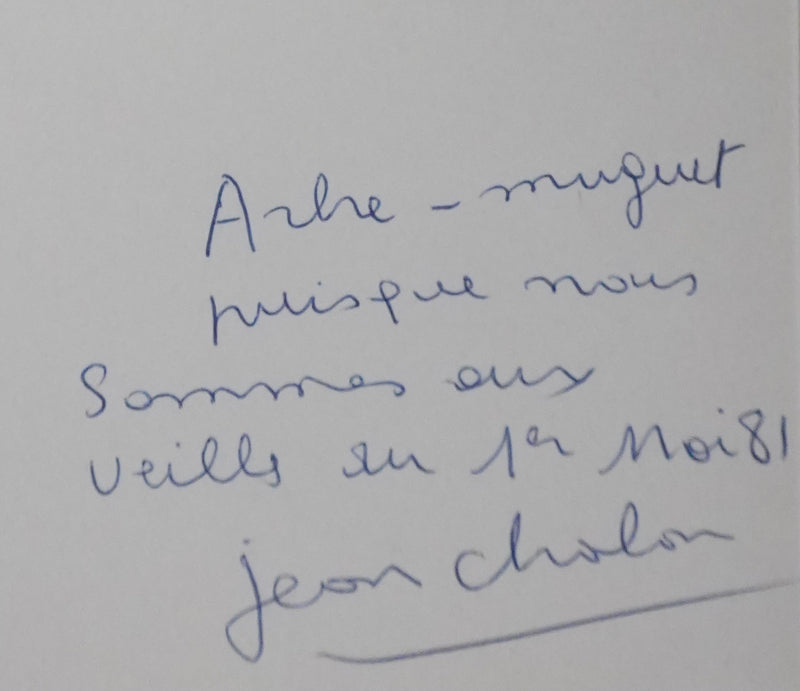 Arbre - muguet
puisque nous
sommes aux
veilles du 1er Mai 81
jean chalon